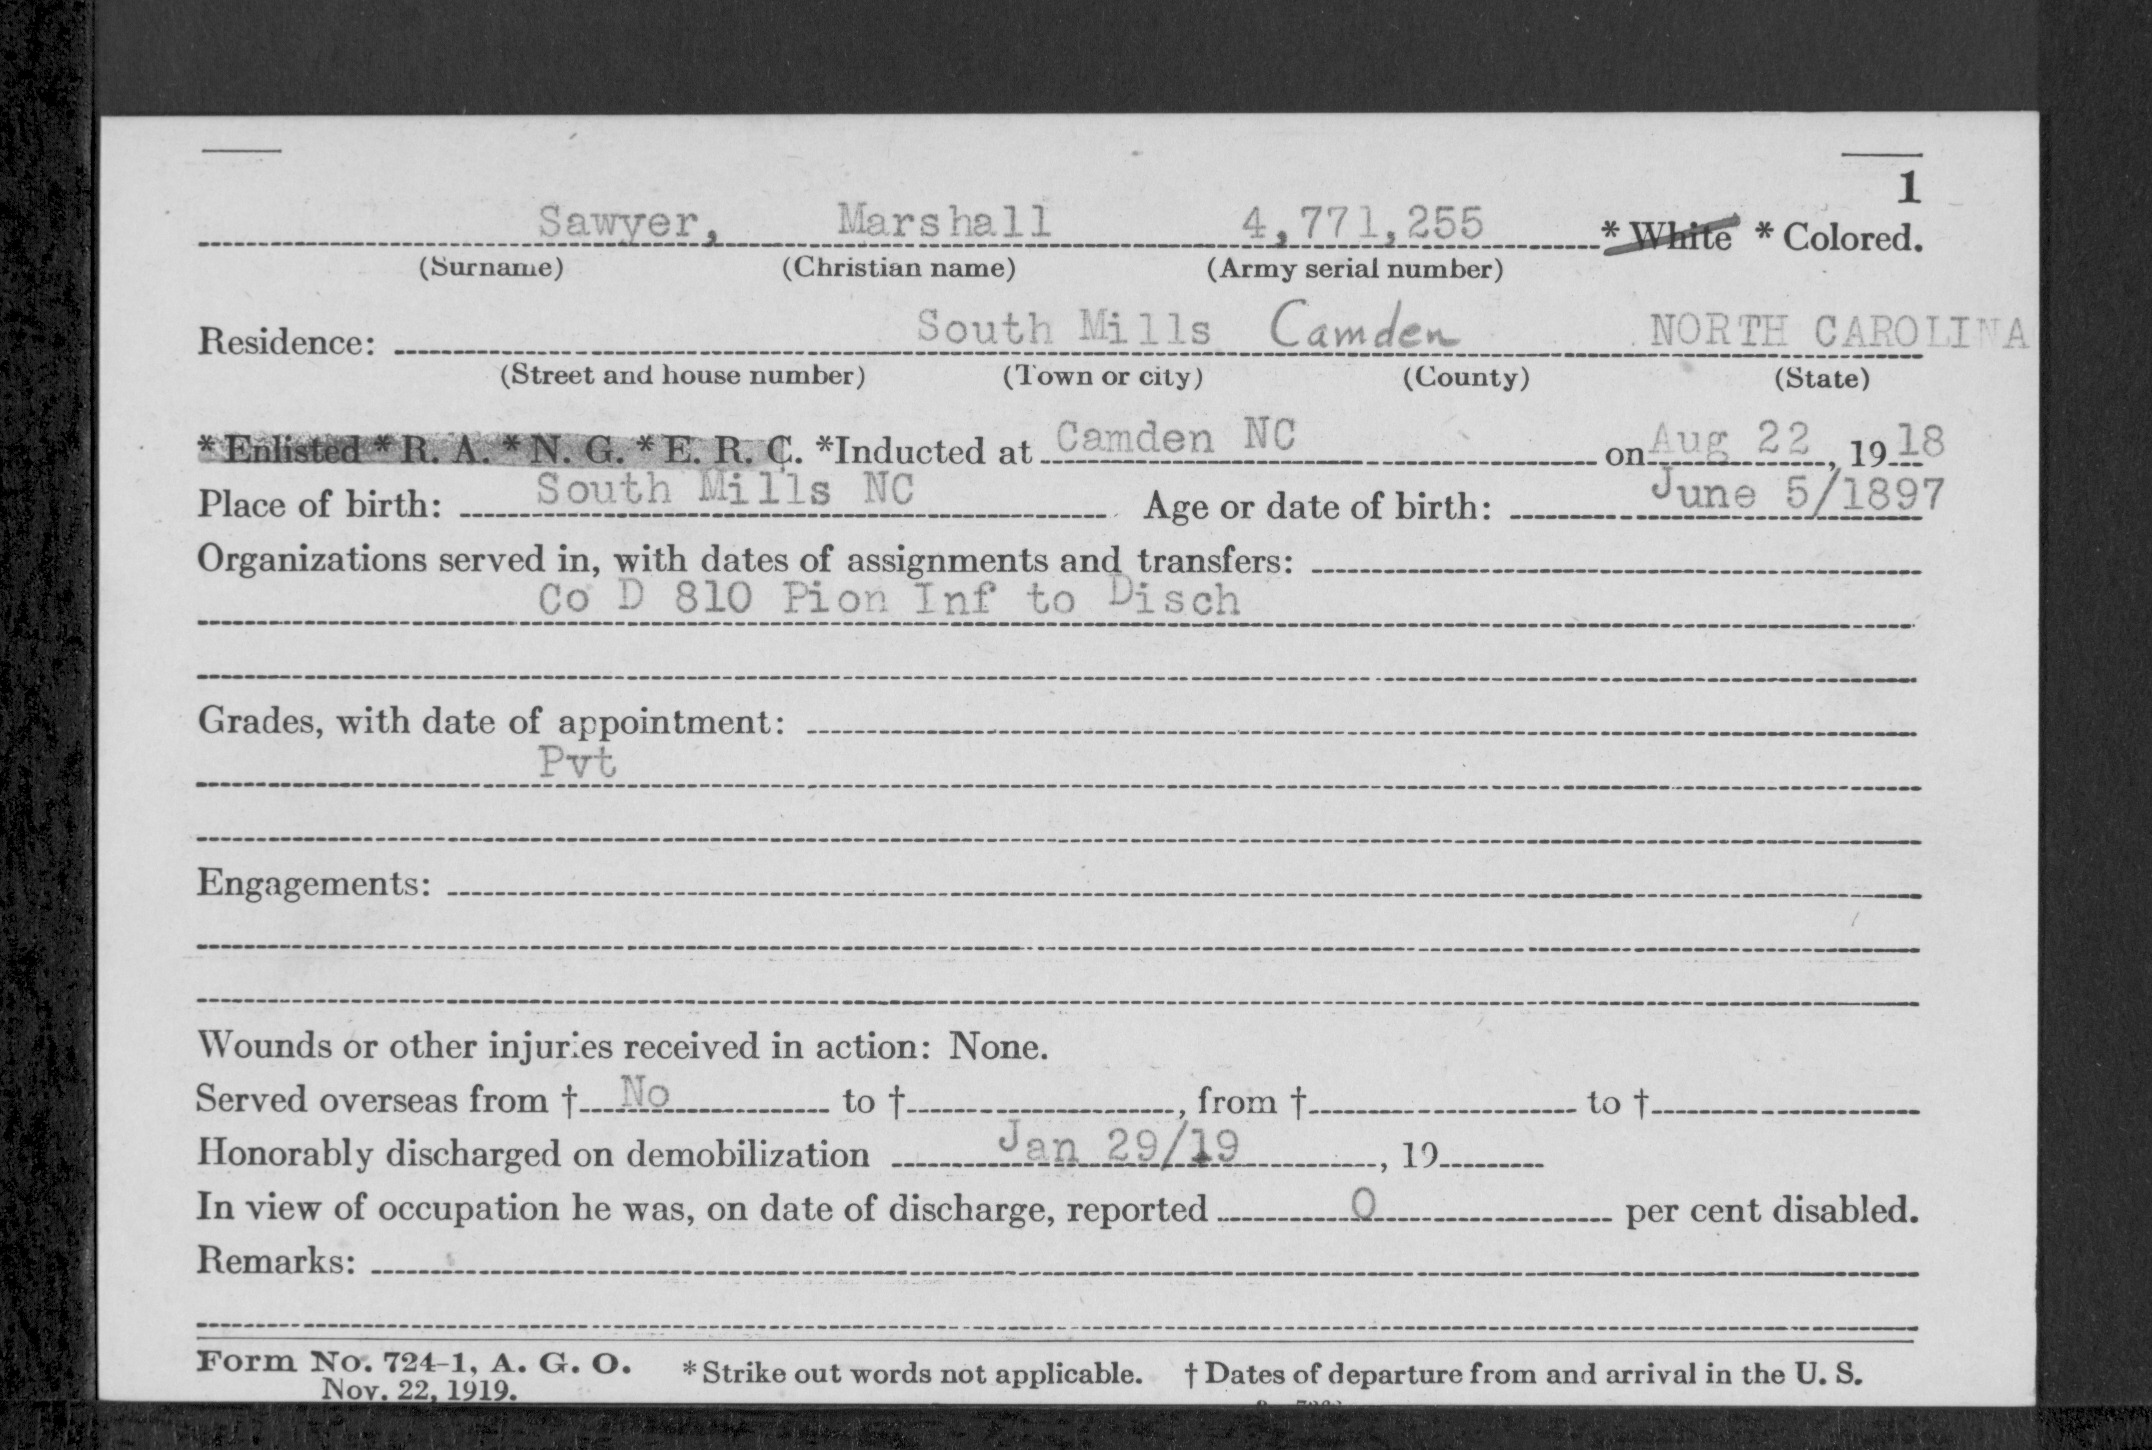 1
Sawyer, Marshall 4,771,255 * White * Colored.
(Surname) (Christian name) (Army serial number)
Residence: South Mills Camden NORTH CAROLINA
(Street and house number) (Town or city) (County) (State)
* Enlisted * R. A. * N. G. * E. R. C. *Inducted at Camden NC on Aug 22, 1918
Place of birth: South Mills NC Age or date of birth: June 5/1897
Organizations served in, with dates of assignments and transfers:
Co D 810 Pion Inf to Disch
Grades, with date of appointment:
Pvt
Engagements:
Wounds or other injuries received in action: None.
Served overseas from † No to †, from † to †
Honorably discharged on demobilization Jan 29/19, 19
In view of occupation he was, on date of discharge, reported 0 per cent disabled.
Remarks:
Form No. 724-1, A. G. O. * Strike out words not applicable. † Dates of departure from and arrival in the U. S.
Nov. 22, 1919.